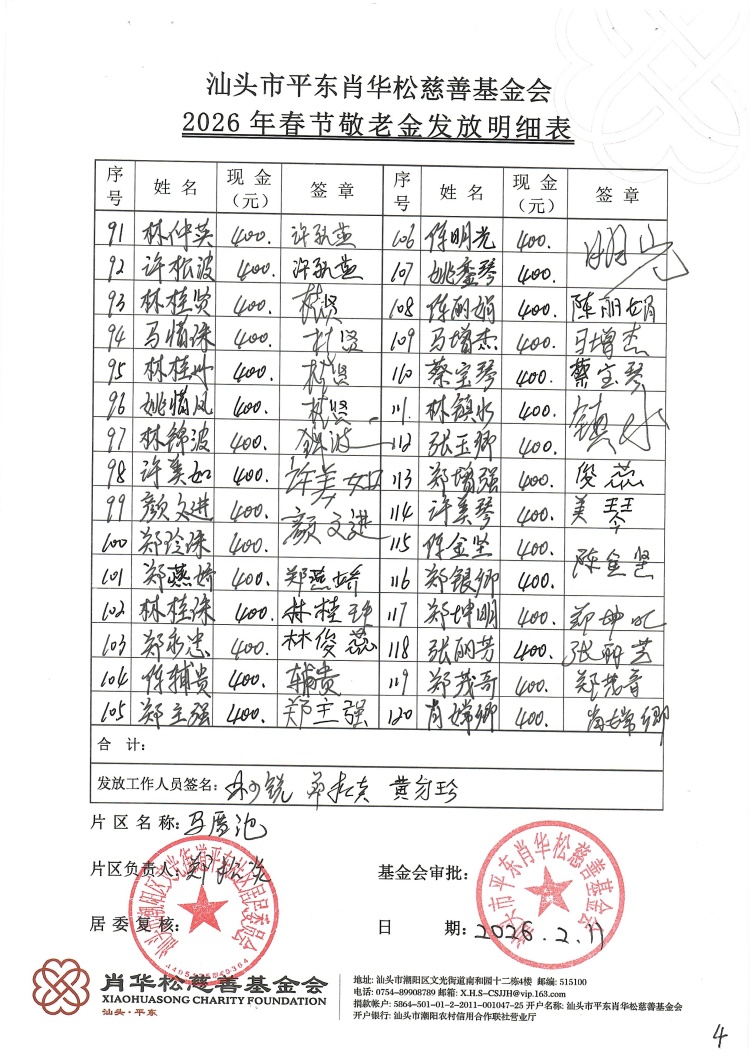 汕头市平东肖华松慈善基金会
2026年春节敬老金发放明细表
序号 姓名 现金（元） 签章 序号 姓名 现金（元） 签章
91 林仲英 400. 106 陈明光 400. 明光
92 许松波 400. 107 姚銮琴 400.
93 林桂贤 400. 桂贤 108 陈丽娟 400. 陈丽娟
94 马惜珠 400. 桂贤 109 马增杰 400. 马增杰
95 林桂 400. 桂贤 110 蔡宝琴 400. 蔡宝琴
96 姚惜凤 400. 桂贤 111. 林镇水 400. 镇水
97 林锦波 400. 锦波 112 张玉卿 400.
98 许美如 400. 许美如 113 郑增强 400. 俊蕊
99 颜文进 400. 颜文进 114 许美琴 400. 美琴
100 郑玲珠 400. 115 陈金坚 400. 陈金坚
101 郑燕婷 400. 郑燕婷 116 郑银卿 400.
102 林桂珠 400. 林桂珠 117 郑坤明 400. 郑坤
103 郑 忠 400. 林俊蕊 118 张丽芳 400. 张丽芳
104 陈辅贵 400. 辅贵 119 郑茂哥 400. 郑茂
105 郑主强 400. 郑主强 120 肖嫦卿 400. 肖嫦卿
合 计：
发放工作人员签名：
片区名称：马厝池
片区负责人：郑
基金会审批：
居委复核：
日 期：2026.2.11
汕头市平东肖华松慈善基金会
肖华松慈善基金会
XIAOHUASONG CHARITY FOUNDATION
汕头·平东
地址: 汕头市潮阳区文光街道南和园十二栋4楼 邮编: 515100
电话: 0754-89908789 邮箱: X.H.S-CSJJH@vip.163.com
捐款帐户: 5864-501-01-2-2011-001047-25 开户名称: 汕头市平东肖华松慈善基金会
开户银行: 汕头市潮阳农村信用合作联社营业厅
4